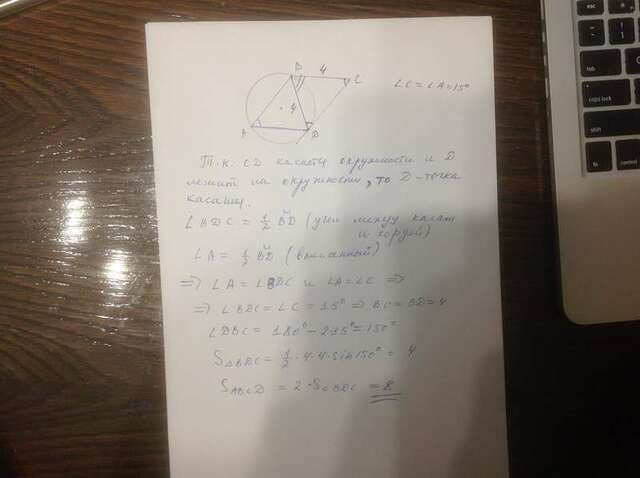 B 4 C
∠C = ∠A = 15°
4
A D
Т.к. CD касается окружности и D
лежит на окружности, то D - точка
касания.
∠BDC = 1/2 B͝D (угол между касат
и хордой)
∠A = 1/2 B͝D (вписанный)
=> ∠A = ∠BDC и ∠A = ∠C =>
=> ∠BDC = ∠C = 15° => BC = BD = 4
∠DBC = 180° - 2·15° = 150°
S△BDC = 1/2 · 4 · 4 · sin150° = 4
SABCD = 2 · S△BDC = 8
tab
caps lock
shift
fn control